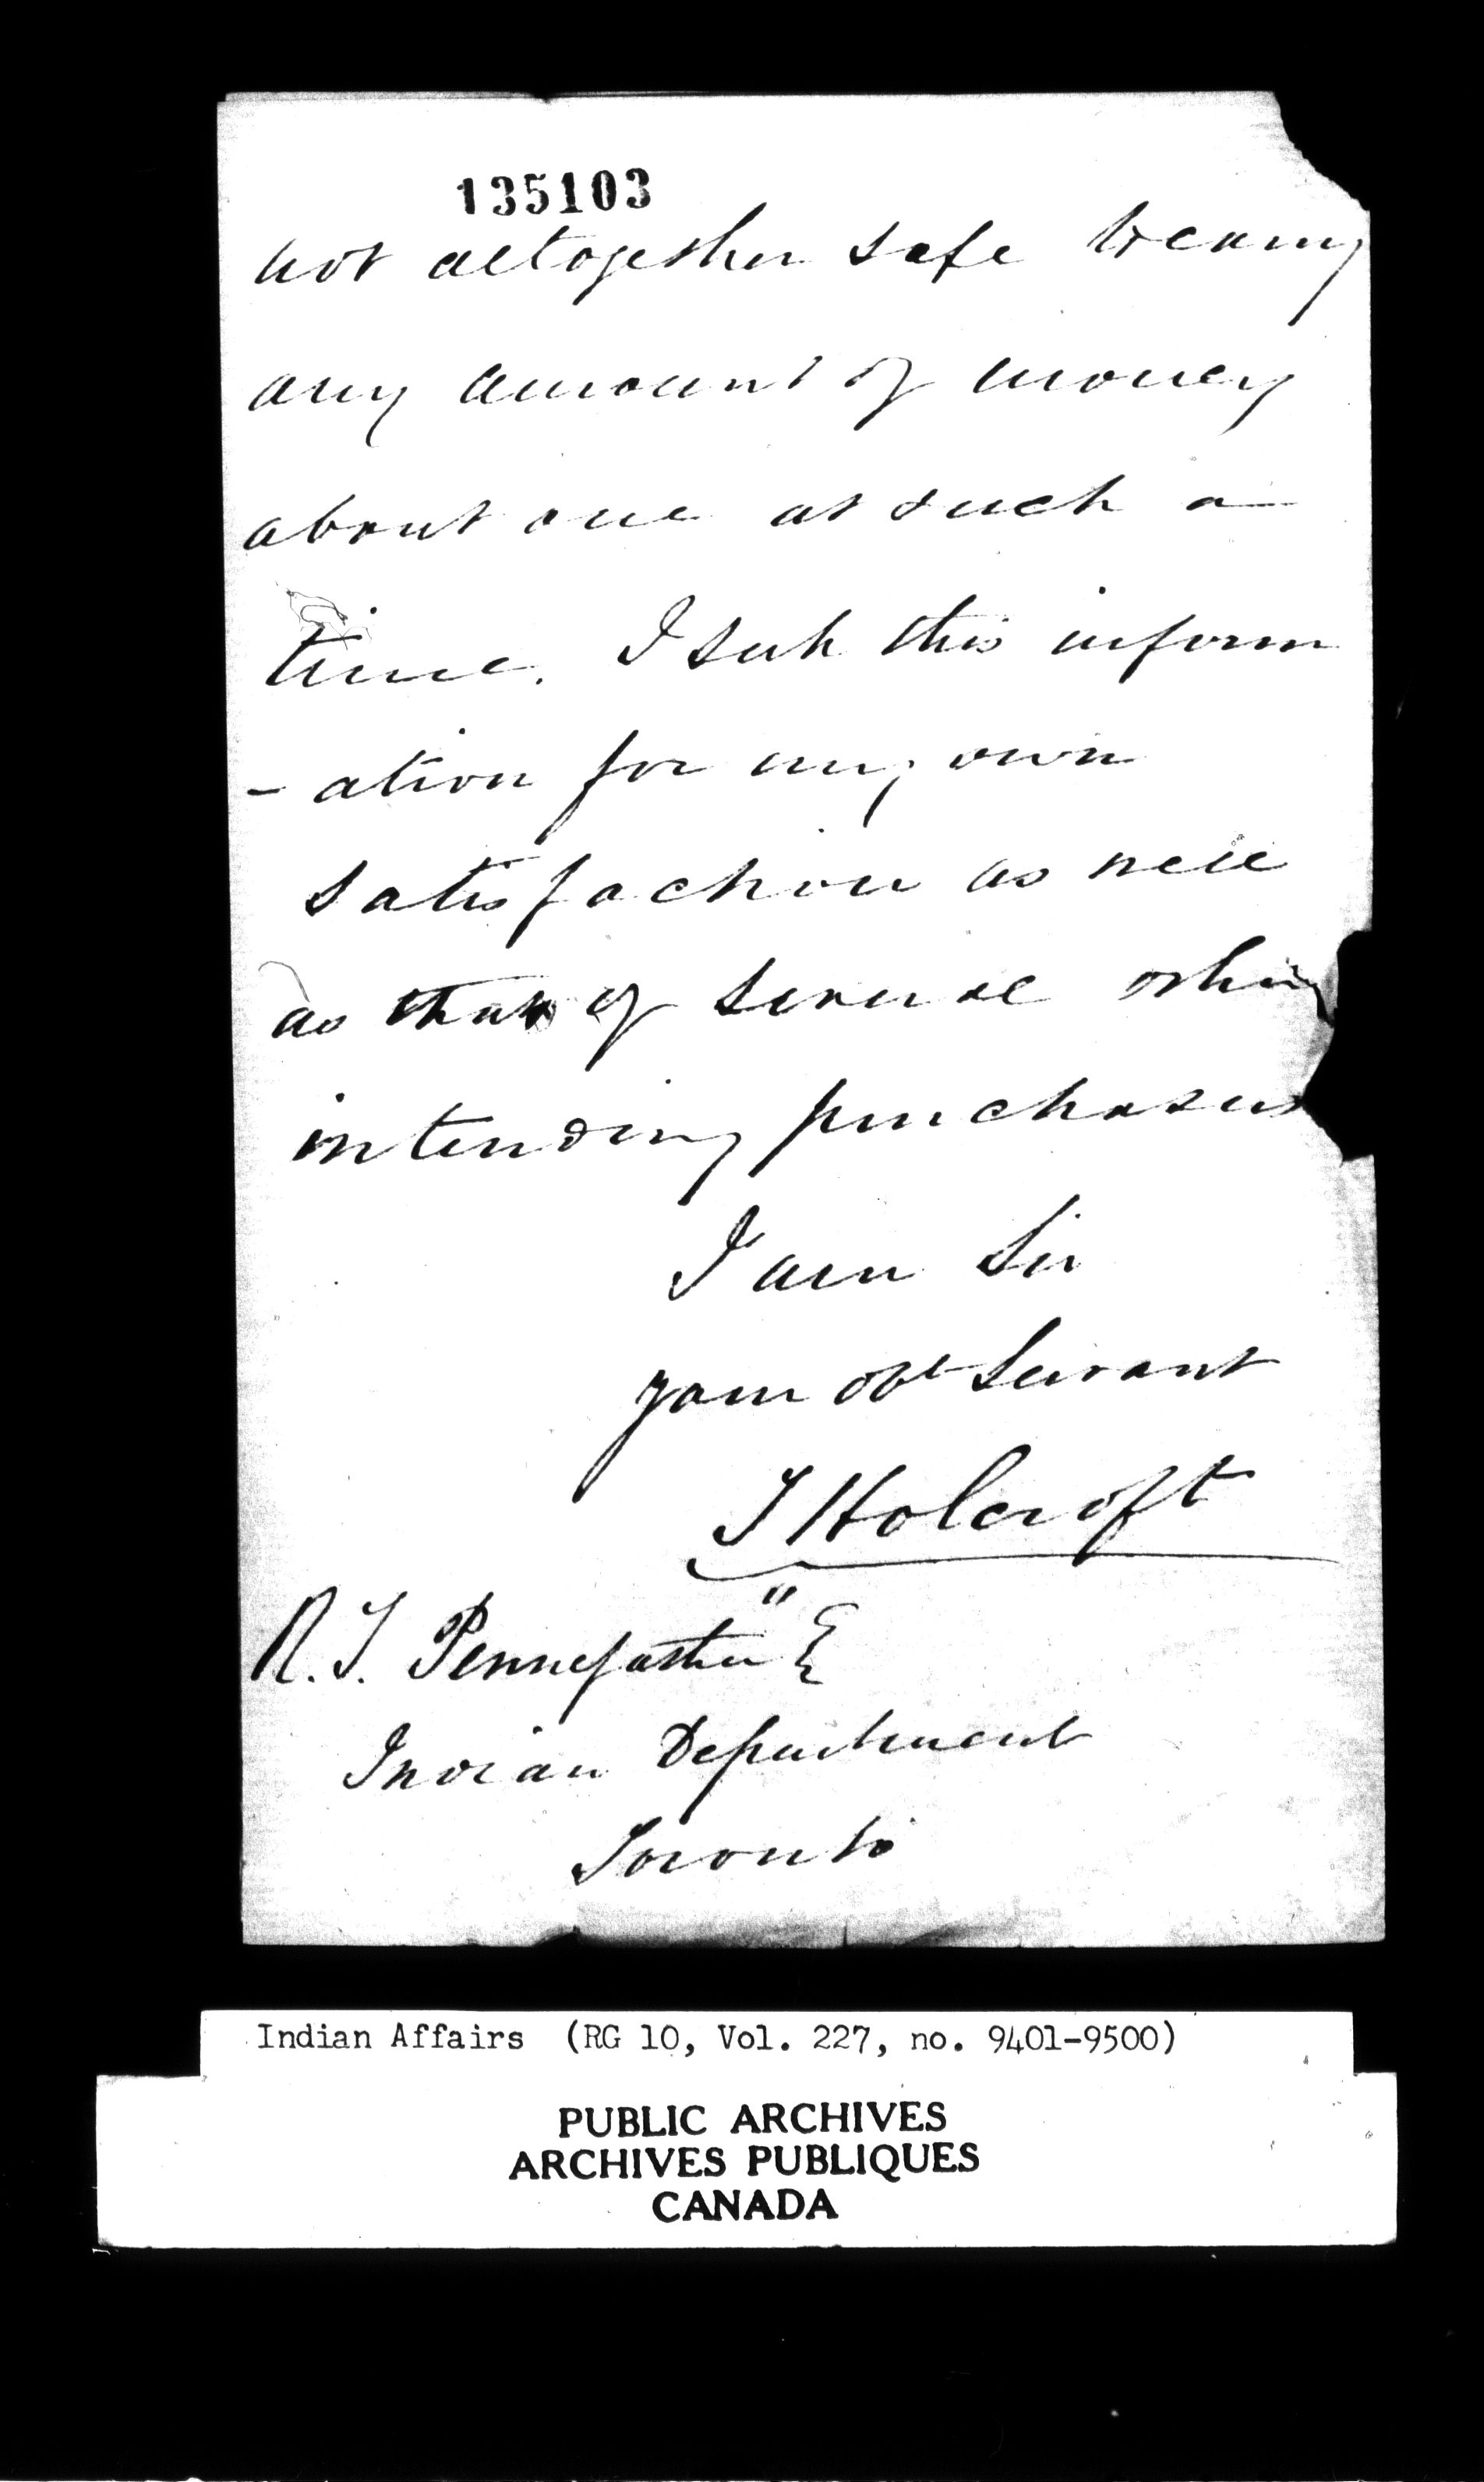 135103
not altogether safe to carry
any amount of money
about one at such a
time. I seek this inform
-ation for my own
satisfaction as well
as that of several other
intending purchasers
I am Sir
your obt Servant
T Holcroft
R. T. Pennefather E
Indian Department
Toronto
Indian Affairs (RG 10, Vol. 227, no. 9401-9500)
PUBLIC ARCHIVES
ARCHIVES PUBLIQUES
CANADA